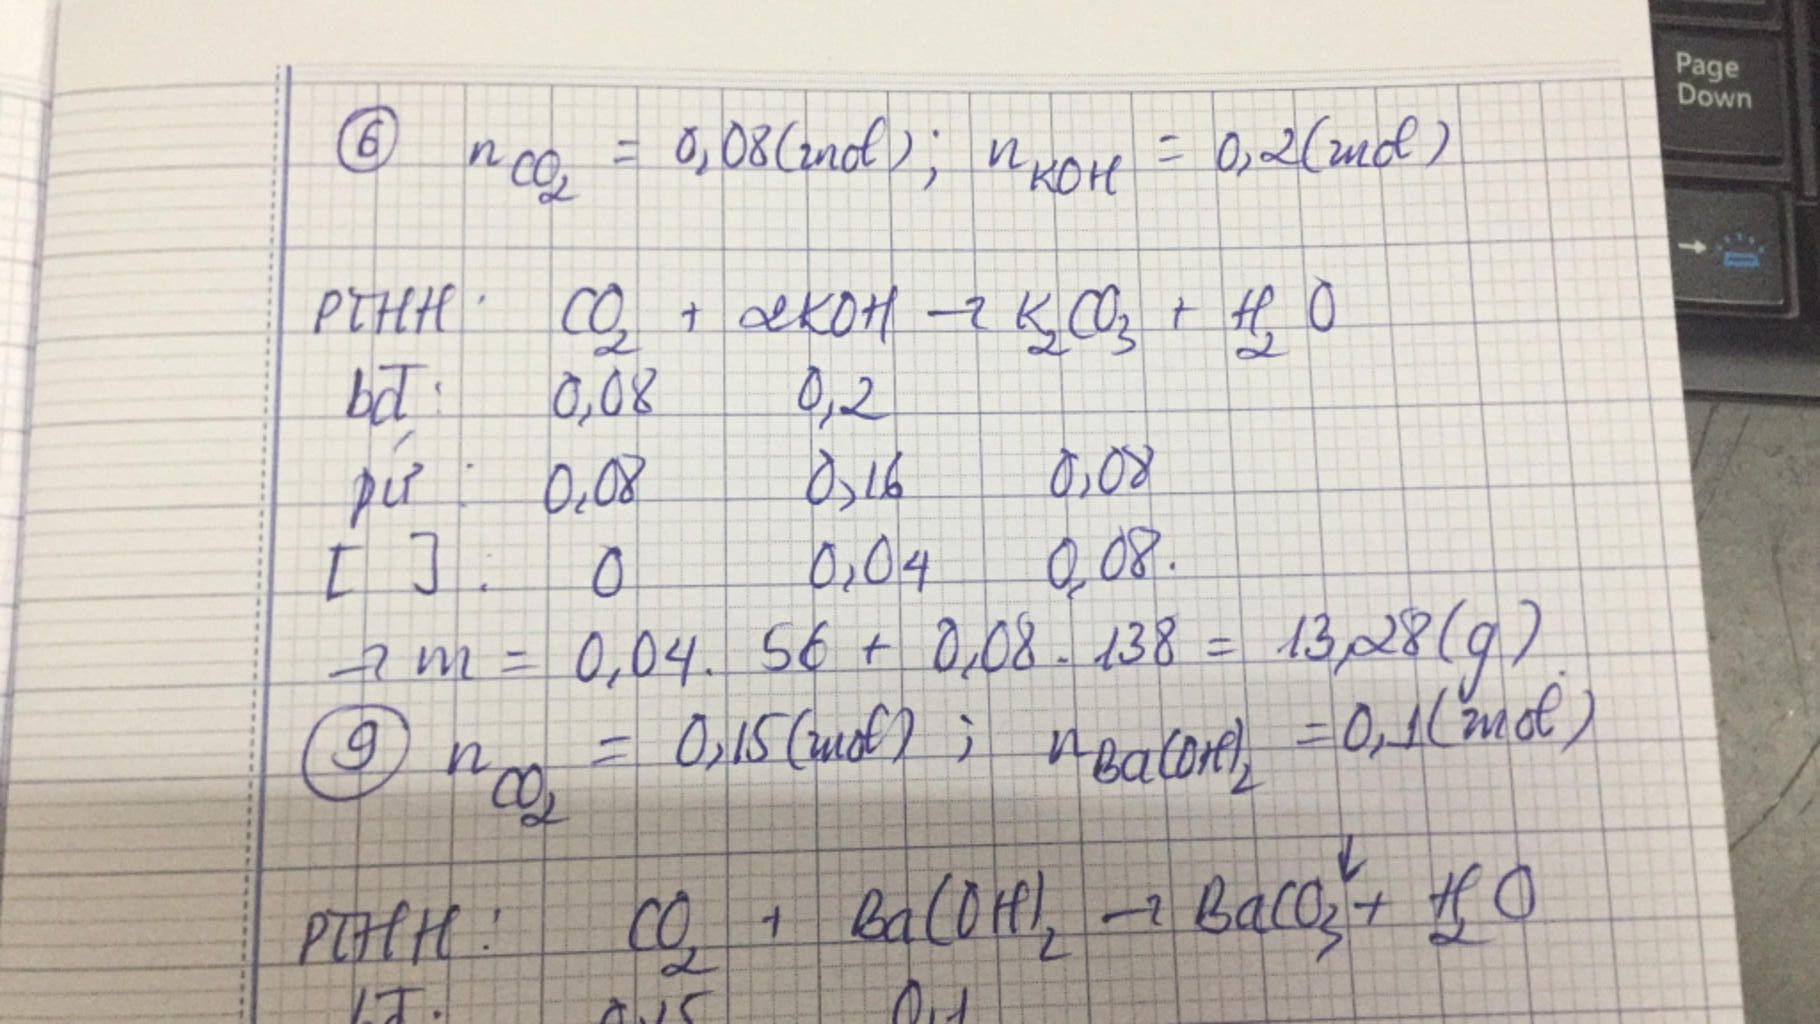 Page
Down
⑥ n CO₂ = 0,08(mol); n KOH = 0,2(mol)
PTHH: CO₂ + 2KOH → K₂CO₃ + H₂O
bđ: 0,08 0,2
pứ: 0,08 0,16 0,08
[ ]: 0 0,04 0,08.
→ m = 0,04. 56 + 0,08. 138 = 13,28(g).
⑨ n CO₂ = 0,15(mol); n Ba(OH)₂ = 0,1(mol)
PTHH: CO₂ + Ba(OH)₂ → BaCO₃↓ + H₂O
bđ: 0,15 0,1